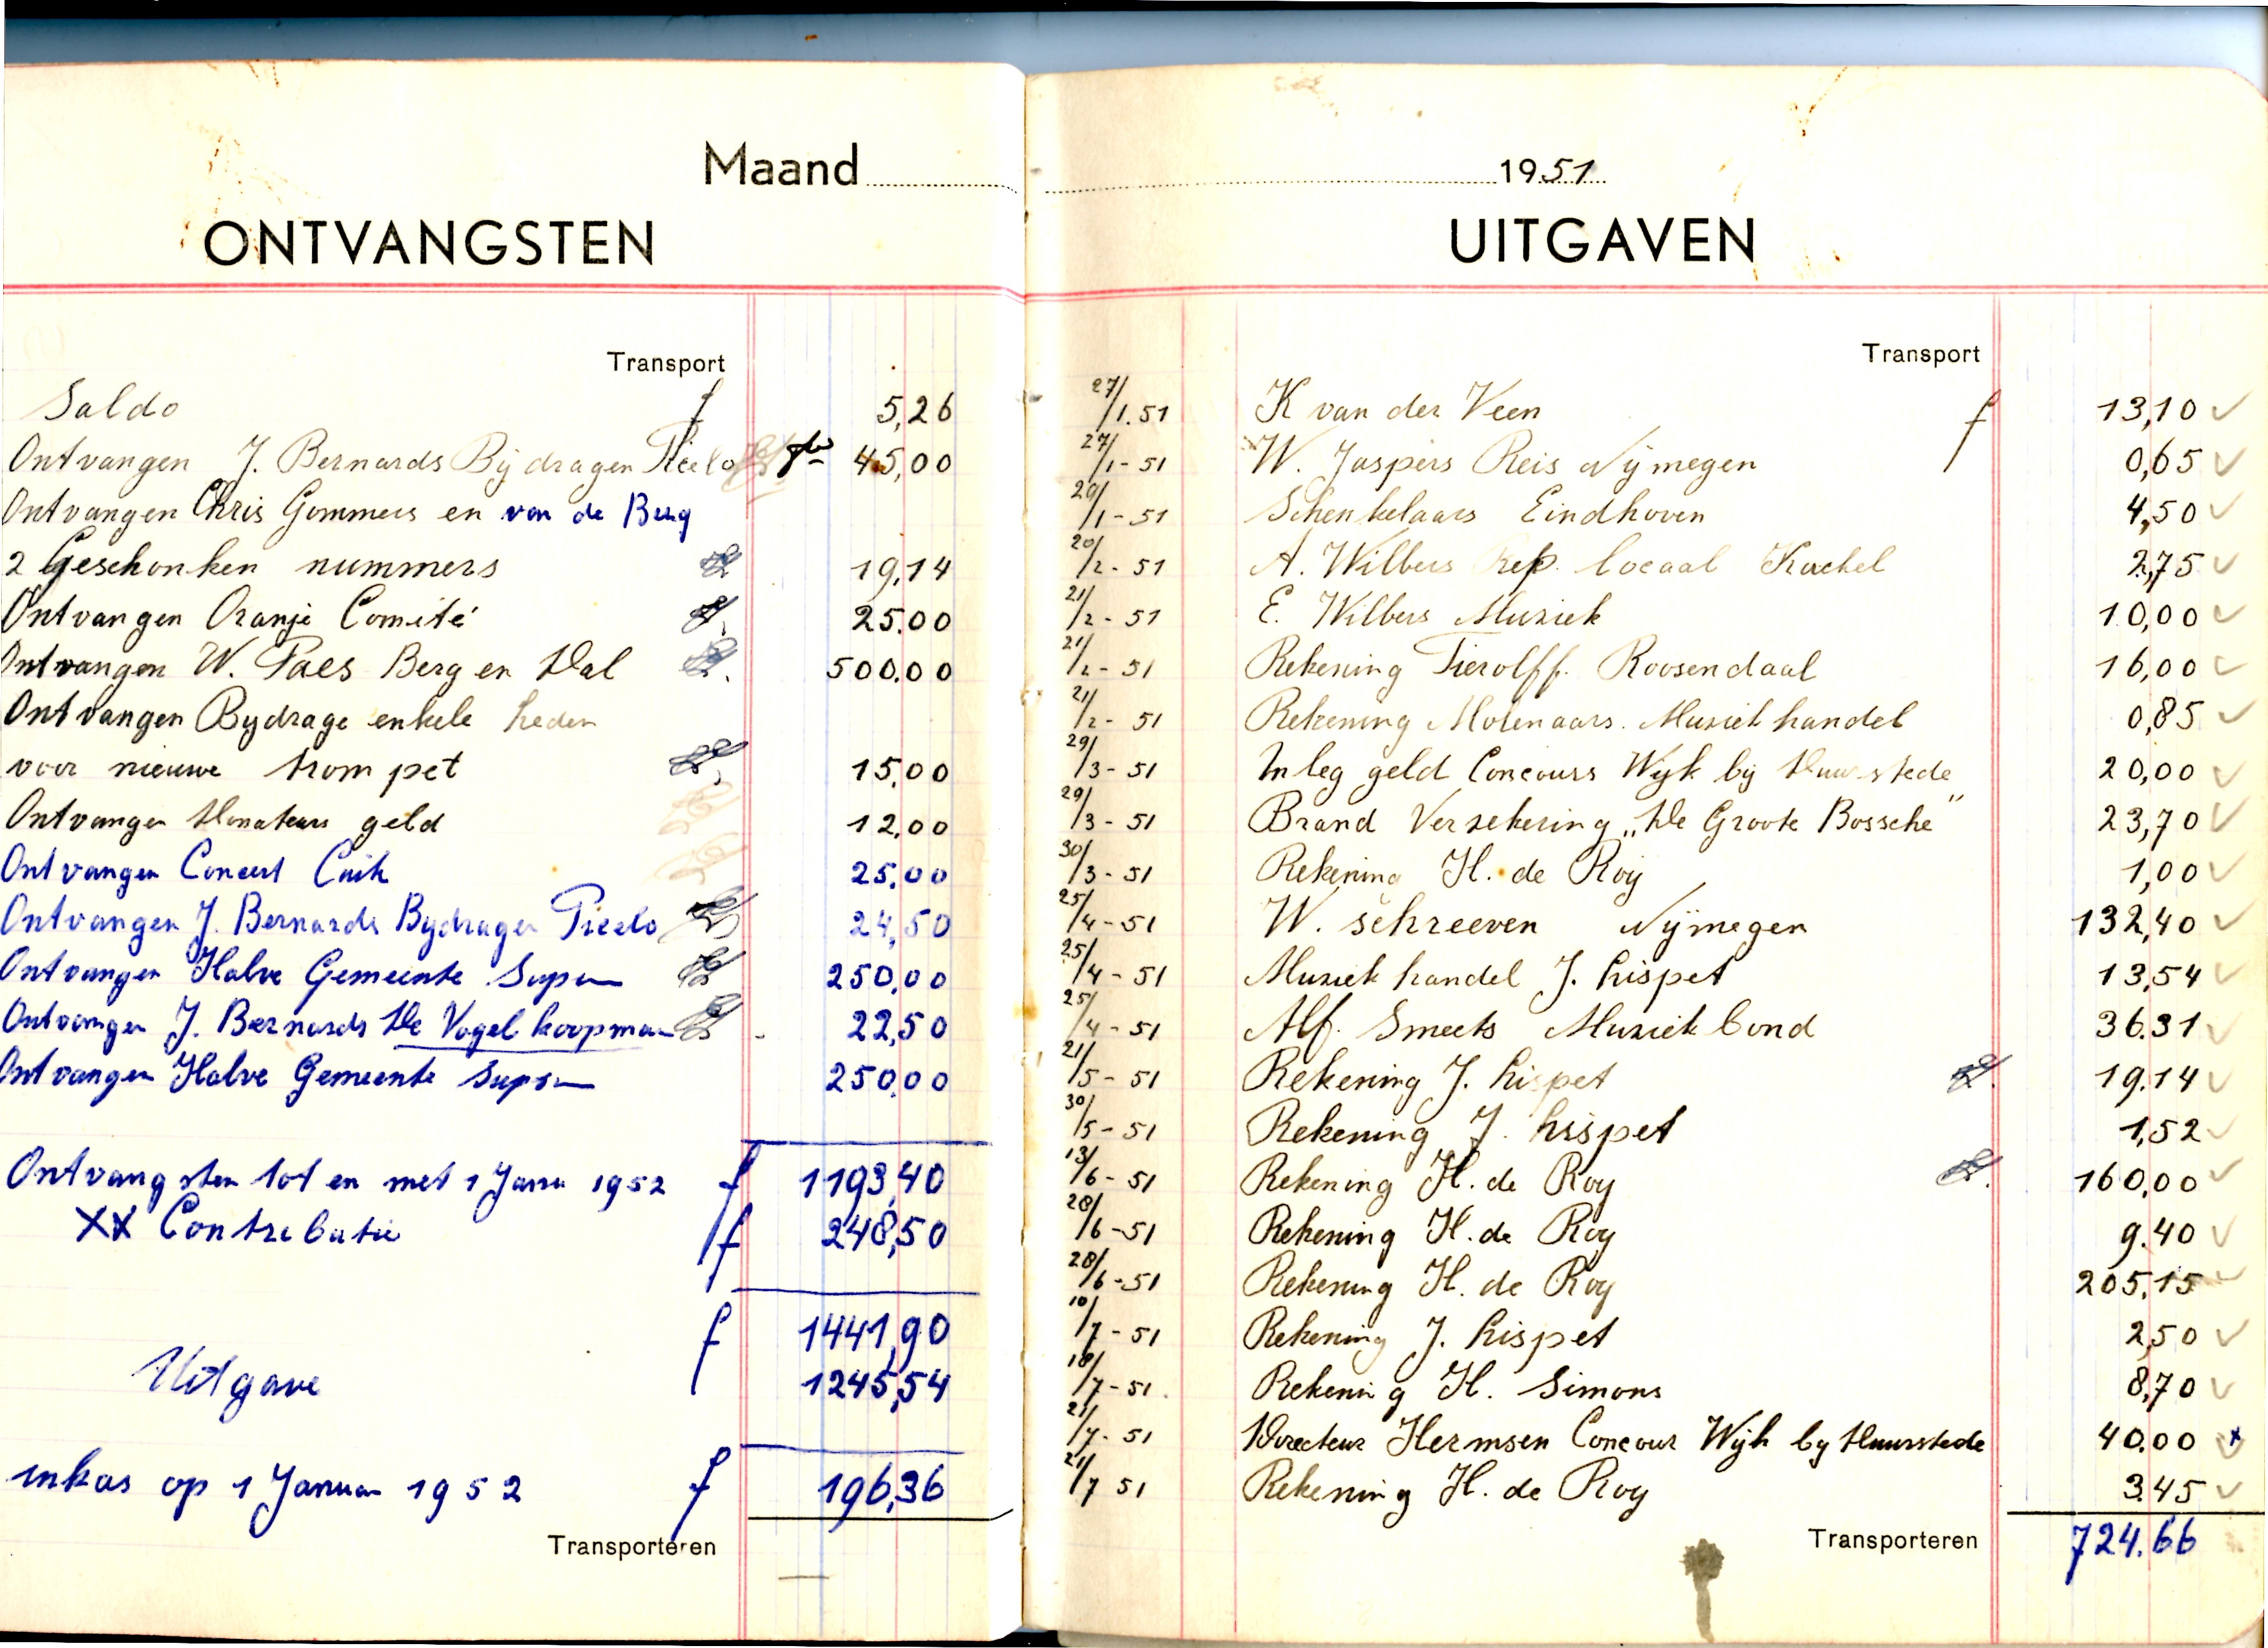 Maand
ONTVANGSTEN
Transport
Saldo f 5,26
Ontvangen J. Bernards Bijdragen Piccolo 45,00
Ontvangen Chris Gommers en van de Berg
2 Geschonken nummers 19,14
Ontvangen Oranje Comité 25.00
Ontvangen W. Paes Berg en Dal 500.00
Ontvangen Bydrage enkele Leden
voor nieuwe trompet 15,00
Ontvangen Donateurs geld 12,00
Ontvangen Concert Cuik 25,00
Ontvangen J. Bernards Bydragen Piccolo 24,50
Ontvangen Halve Gemeente 250,00
Ontvangen J. Bernards De Vogelkoopman 22,50
Ontvangen Halve Gemeente 250,00
Ontvangsten tot en met 1 Janu 1952 f 1193,40
XX Contrebutie f 248,50
f 1441,90
Uitgave 1245,54
inkas op 1 Januar 1952 f 196,36
Transporteren
1951
UITGAVEN
Transport
27/1.51 K van der Veen f 13,10
27/1-51 W. Jaspers Reis Nijmegen 0,65
29/1-51 Schenkelaars Eindhoven 4,50
20/2-51 A. Wilbers Rep. locaal Kachel 2,75
21/2-51 E. Wilbers Muziek 10,00
21/2-51 Rekening Tierolff. Roosendaal 16,00
21/2-51 Rekening Molenaars. Muziekhandel 0,85
29/3-51 Inleg geld Concours Wijk bij Duurstede 20,00
29/3-51 Brand Verzekering „De Groote Bossche" 23,70
30/3-51 Rekening H. de Roy 1,00
25/4-51 W. Schreeven Nijmegen 132,40
25/4-51 Muziekhandel J. Lispet 13,54
25/4-51 Alf. Smeets Muziekbond 36.31
21/5-51 Rekening J. Lispet 19.14
30/5-51 Rekening J. Lispet 1,52
13/6-51 Rekening H. de Roy 160,00
28/6-51 Rekening H. de Roy 9.40
28/6-51 Rekening H. de Roy 205,15
10/7-51 Rekening J. Lispet 2,50
18/7-51 Rekening H. Simons 8,70
21/7-51 Directeur Hermsen Concour Wijk by Duurstede 40.00
21/7 51 Rekening H. de Roy 3.45
Transporteren 724.66